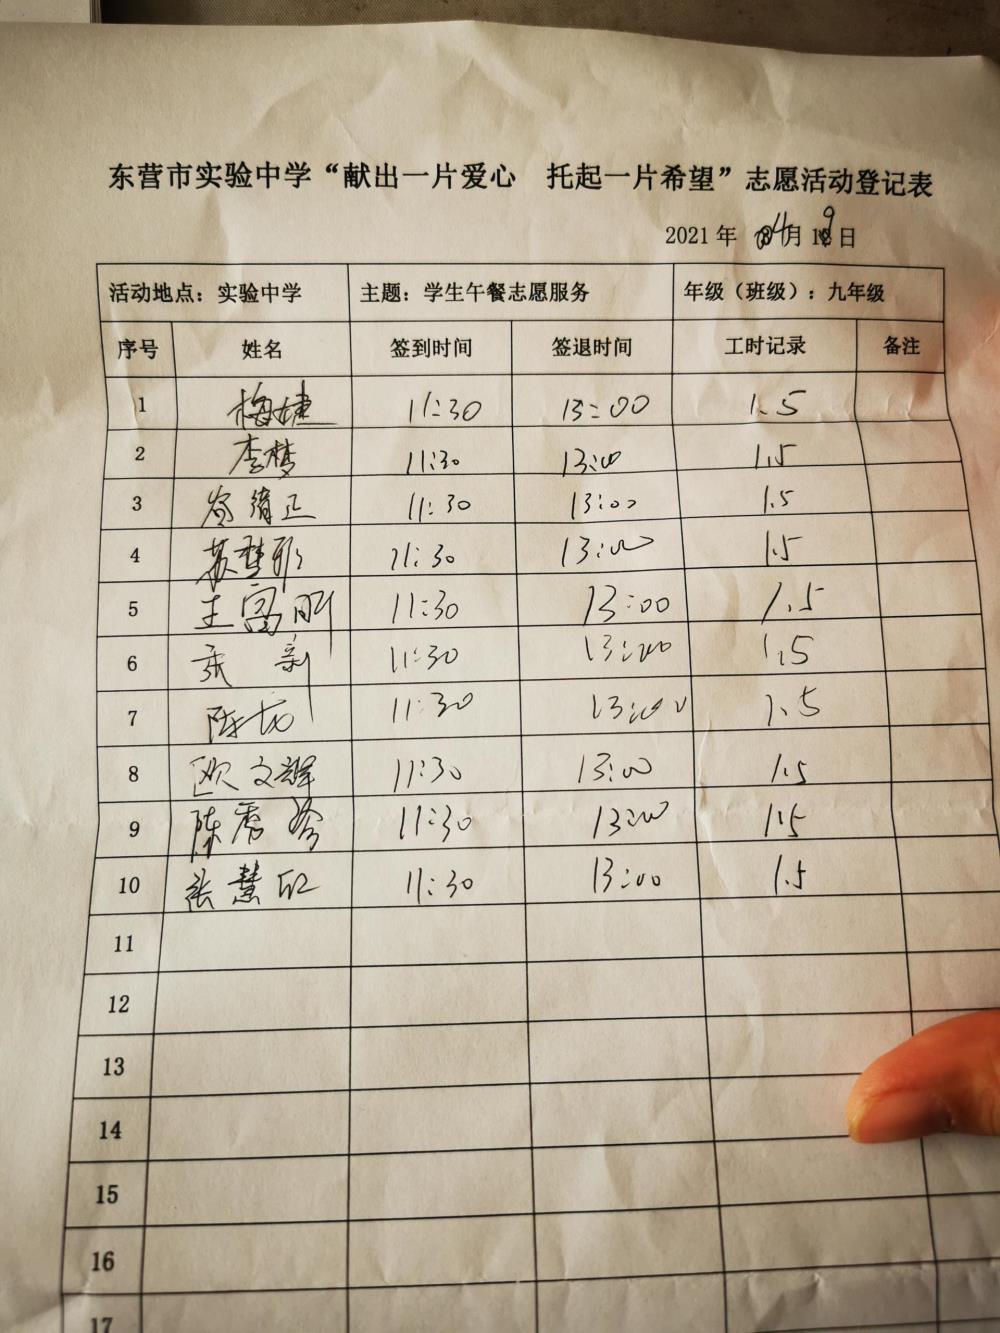 东营市实验中学“献出一片爱心 托起一片希望”志愿活动登记表
2021 年 4月 19日
活动地点：实验中学 主题：学生午餐志愿服务 年级（班级）：九年级
序号 姓名 签到时间 签退时间 工时记录 备注
1 梅婕 11:30 13:00 1.5
2 李梦 11:30 13:00 1.5
3 11:30 13:00 1.5
4 苏梦 11:30 13:00 1.5
5 王富明 11:30 13:00 1.5
6 张新 11:30 13:00 1.5
7 陈 11:30 13:00 1.5
8 欧文辉 11:30 13:00 1.5
9 陈秀 11:30 13:00 1.5
10 张慧 11:30 13:00 1.5
11
12
13
14
15
16
17